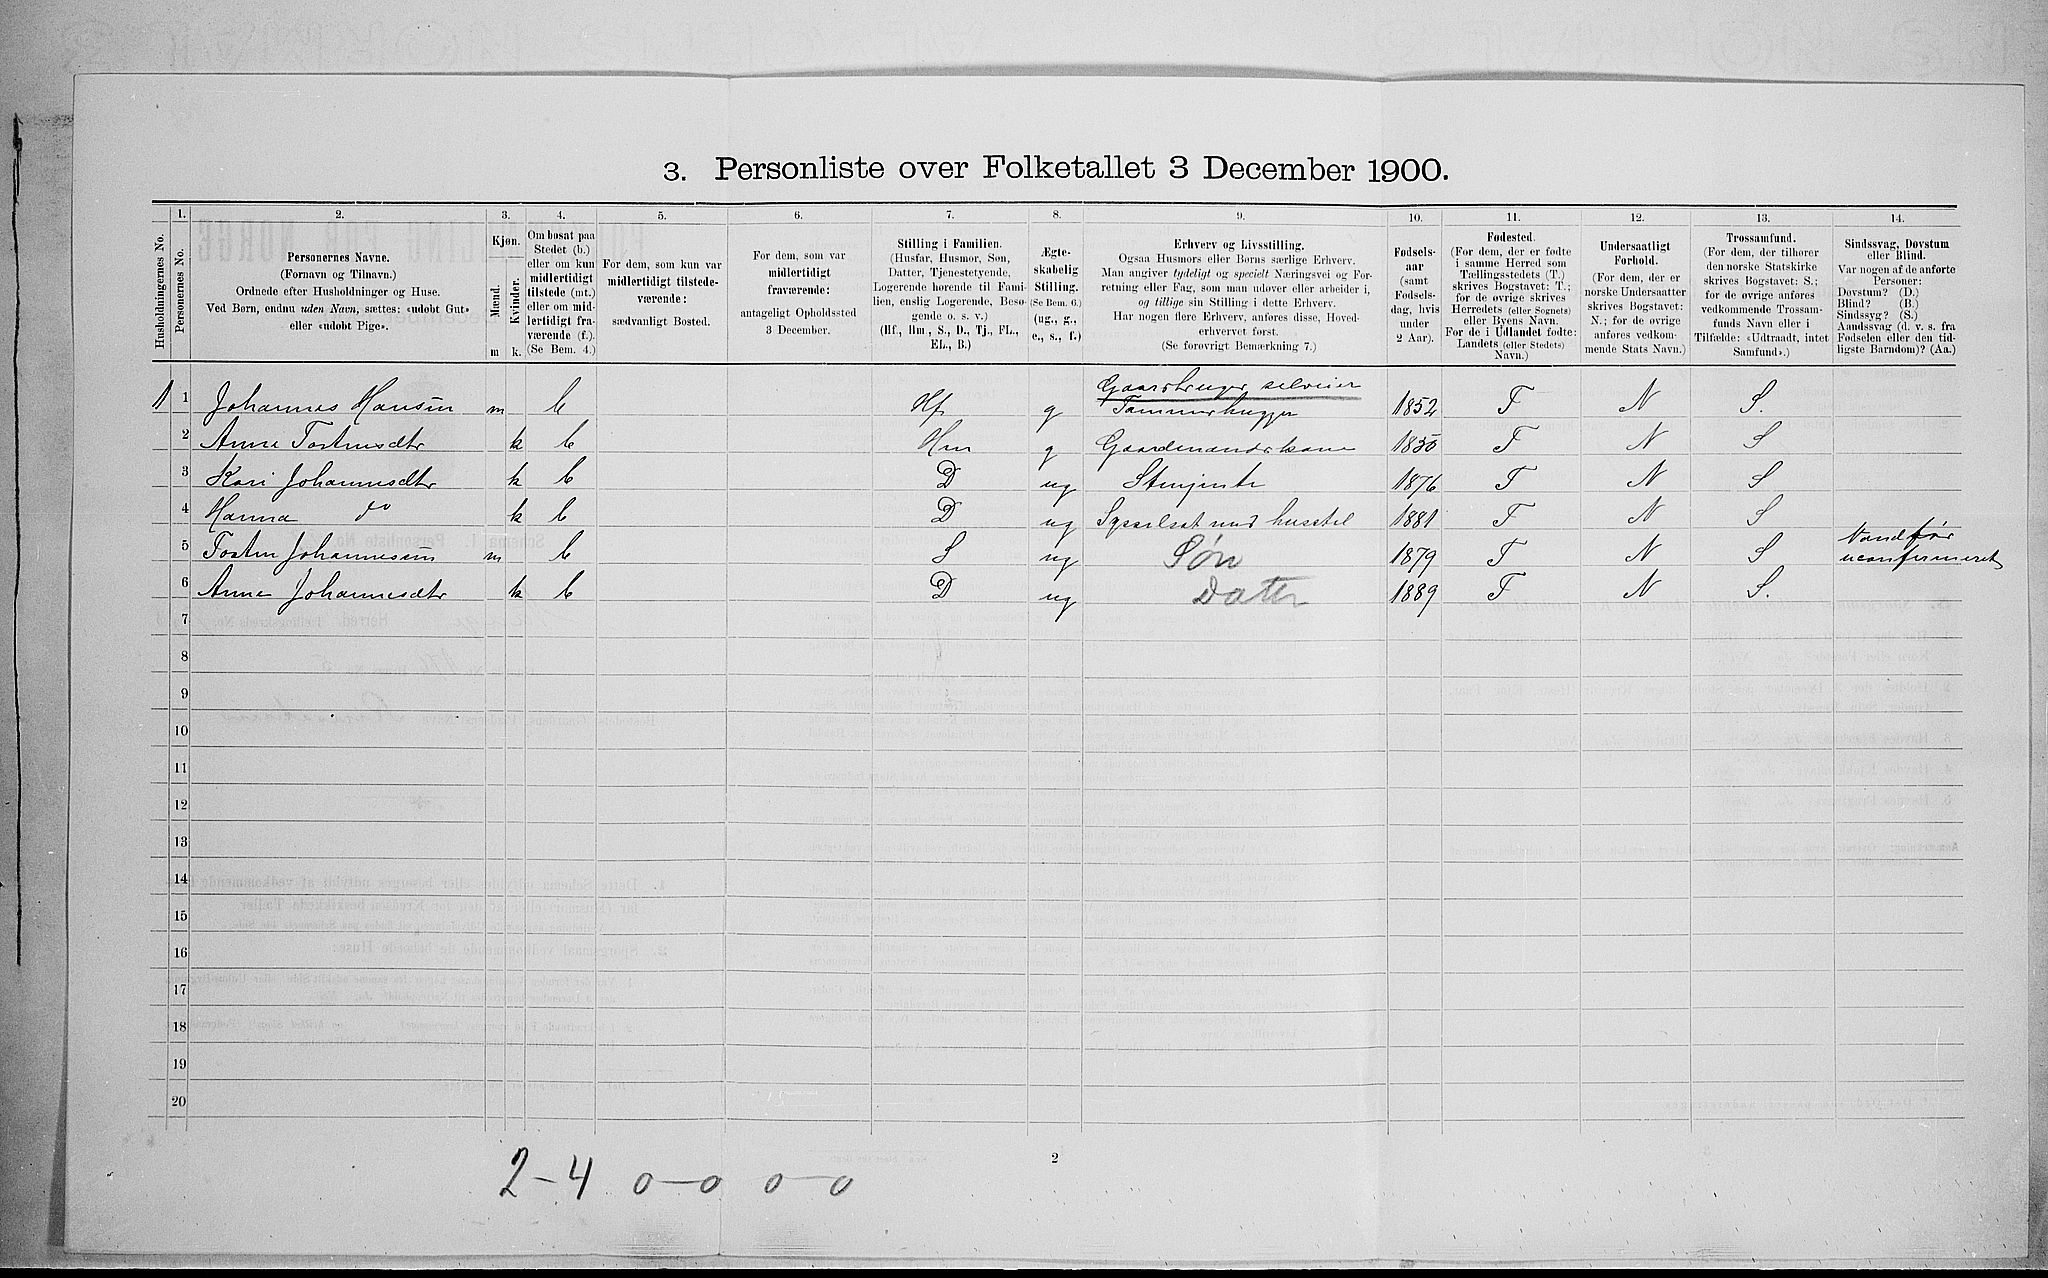 3. Personliste over Folketallet 3 December 1900.
Husholdningernes No.
1.
Personernes No.
2.
Personernes Navne.
(Fornavn og Tilnavn.)
Ordnede efter Husholdninger og Huse.
Ved Børn, endnu uden Navn, sættes: «udøbt Gut»
eller «udøbt Pige».
3.
Kjøn.
Mænd.
Kvinder.
m k.
4.
Om bosat paa
Stedet (b.)
eller om kun
midlertidigt
tilstede (mt.)
eller om mid-
lertidigt fra-
værende (f.).
(Se Bem. 4.)
5.
For dem, som kun var
midlertidigt tilstede-
værende:
sædvanligt Bosted.
6.
For dem, som var
midlertidigt
fraværende:
antageligt Opholdssted
3 December.
7.
Stilling i Familien.
(Husfar, Husmor, Søn,
Datter, Tjenestetyende,
Logerende hørende til Fami-
lien, enslig Logerende, Besø-
gende o. s. v.)
(Hf., Hm., S., D., Tj., FL.,
EL., B.)
8.
Ægte-
skabelig
Stilling.
(Se Bem. 6.)
(ug., g.,
e., s., f.)
9.
Erhverv og Livsstilling.
Ogsaa Husmors eller Børns særlige Erhverv.
Man angiver tydeligt og specielt Næringsvei og For-
retning eller Fag, som man udøver eller arbeider i,
og tillige sin Stilling i dette Erhverv.
Har nogen flere Erhverv, anføres disse, Hoved-
erhvervet først.
(Se forøvrigt Bemærkning 7.)
10.
Fødsels-
aar
(samt
Fødsels-
dag, hvis
under
2 Aar).
11.
Fødested.
(For dem, der er fødte
i samme Herred som
Tællingsstedets (T.)
skrives Bogstavet: T.;
for de øvrige skrives
Herredets (eller Sognets)
eller Byens Navn.
For de i Udlandet fødte:
Landets (eller Stedets)
Navn.)
12.
Undersaatligt
Forhold.
(For dem, der er
norske Undersaatter
skrives Bogstavet:
N.; for de øvrige
anføres vedkom-
mende Stats Navn.)
13.
Trossamfund.
(For dem, der tilhører
den norske Statskirke
skrives Bogstavet: S.;
for de øvrige anføres
vedkommende Trossam-
funds Navn eller i
Tilfælde: «Udtraadt, intet
Samfund».)
14.
Sindssvag, Døvstum
eller Blind.
Var nogen af de anførte
Personer:
Døvstum? (D.)
Blind? (B.)
Sindssyg? (S.)
Aandssvag (d. v. s. fra
Fødselen eller den tid-
ligste Barndom)? (Aa.)
1 1 Johannes Hansen m b Hf g Gaardbruger selveier
Tømmerhugger 1852 T N S.
2 Anne Tostensdtr k b Hm g Gaardmandskone 1850 T N S
3 Kari Johannesdtr k b D ug 1876 T N S
4 Hanna do k b D ug Sysselsat med husstel 1881 T N S
5 Tosten Johannessen m b S ug Søn 1879 T N S Vandfør
uconfirmeret
6 Anne Johannesdtr k b D ug Datter 1889 T N S.
7
8
9
10
11
12
13
14
15
16
17
18
19
20
2
2-4 0-0 0-0